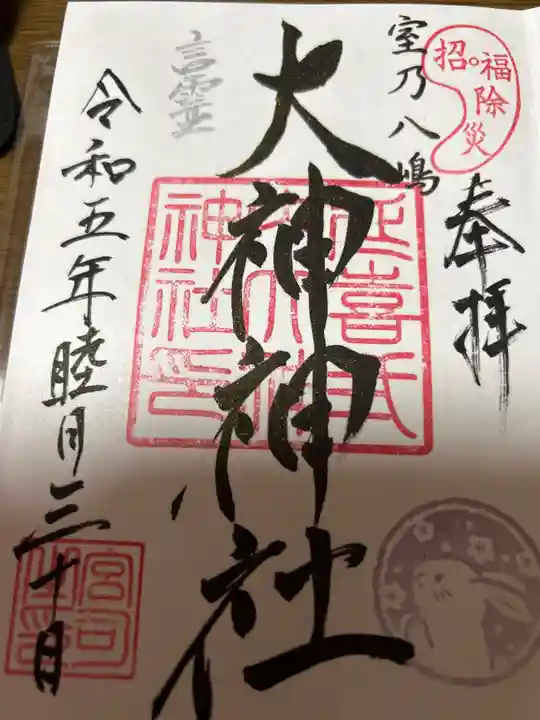 招福除災
奉拝
室乃八嶋
大神神社
延喜式
神社印
言霊
令和五年睦月三十日
宮司